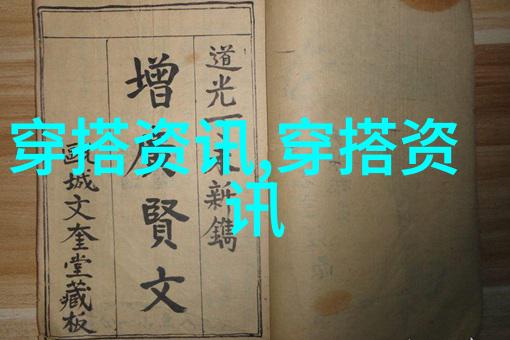 穿搭资讯,穿搭资
讯
道光未新鐫
增廣賢文
甌城文奎堂藏板